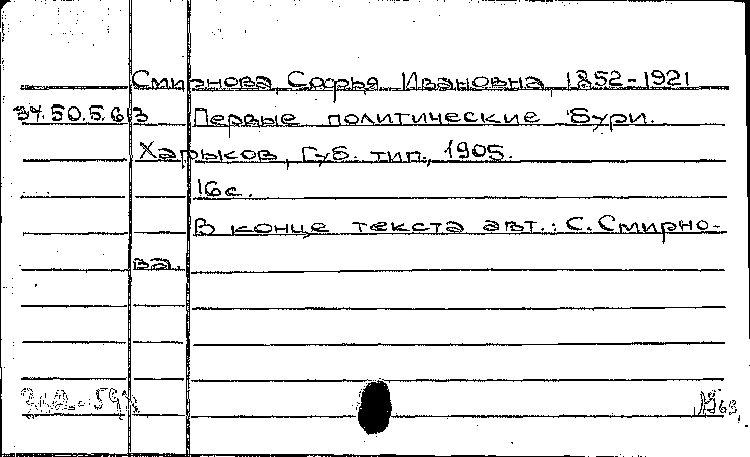 Смирнова, Софья Ивановна, 1852-1921
34.50.5.613 Первые политические бури.
Харьков, Губ. тип., 1905.
16с.
В конце текста авт.: С. Смирно-
ва.